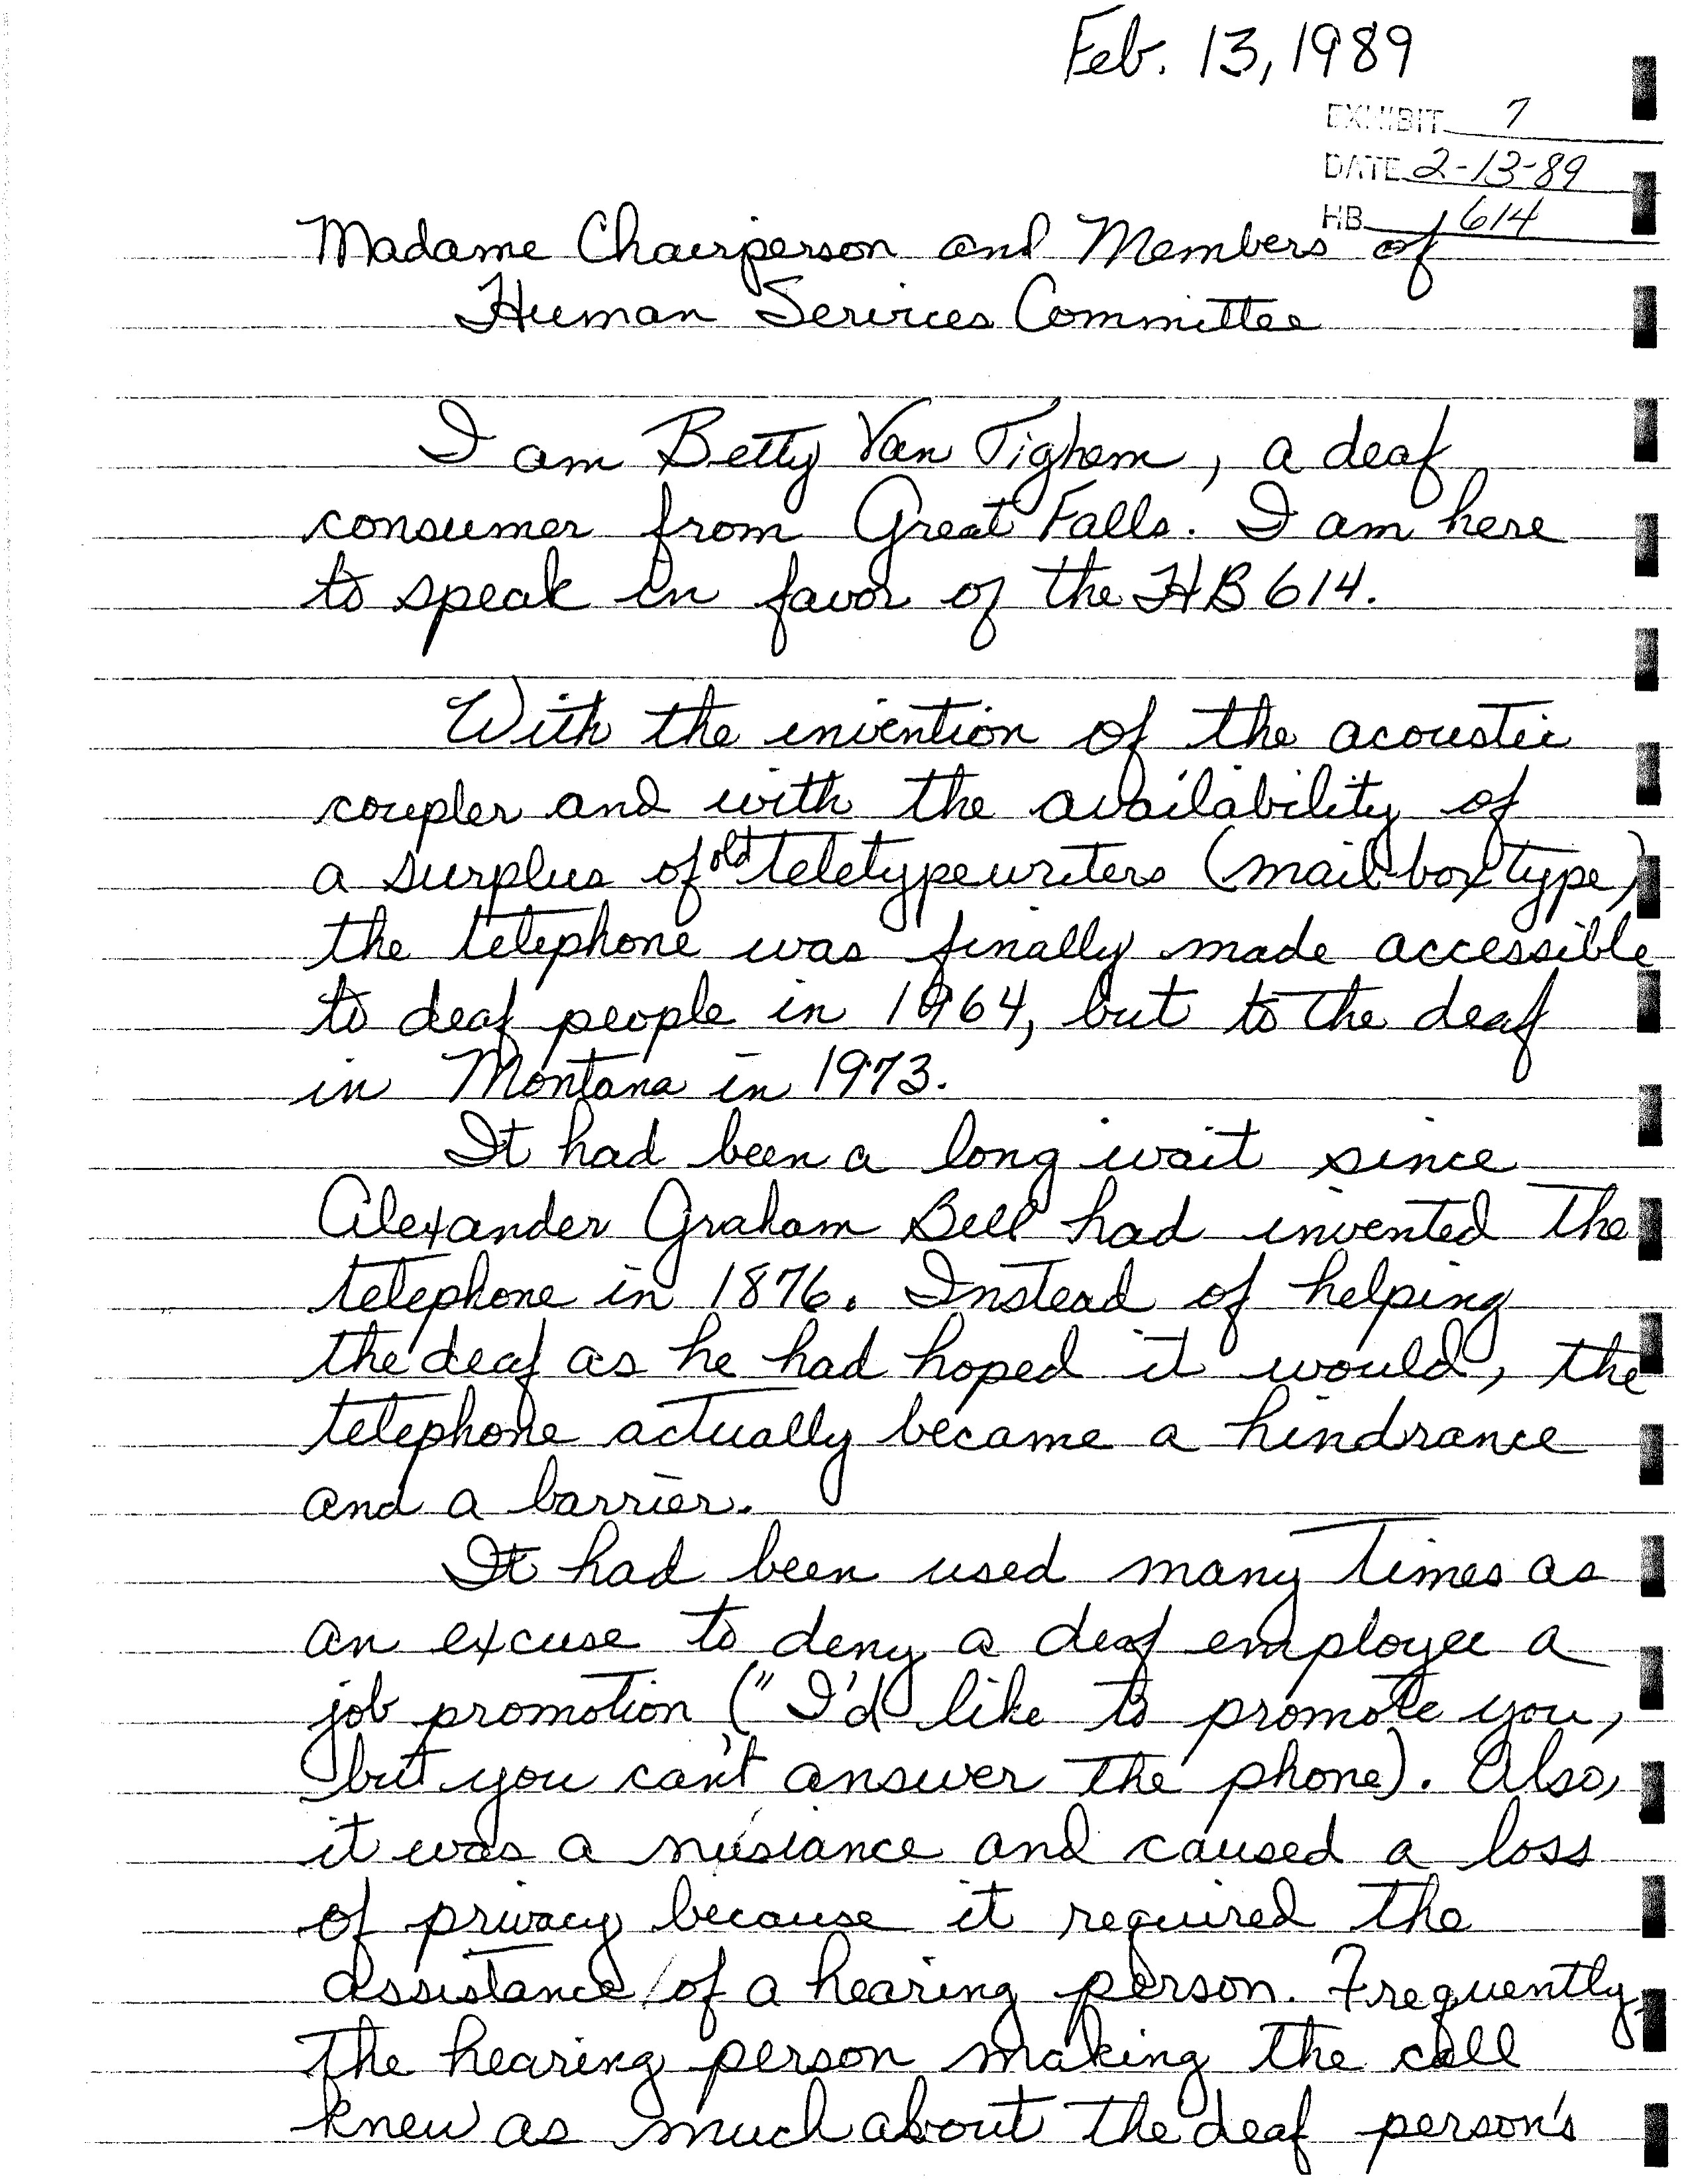 Feb. 13, 1989
EXHIBIT 7
DATE 2-13-89
HB 614
Madame Chairperson and Members of
Human Services Committee
I am Betty Van Tighem, a deaf
consumer from Great Falls. I am here
to speak in favor of the HB 614.
With the invention of the acoustic
coupler and with the availability of
a surplus of old teletypewriters (mail box type)
the telephone was finally made accessible
to deaf people in 1964, but to the deaf
in Montana in 1973.
It had been a long wait since
Alexander Graham Bell had invented the
telephone in 1876. Instead of helping
the deaf as he had hoped it would, the
telephone actually became a hindrance
and a barrier.
It had been used many times as
an excuse to deny a deaf employee a
job promotion ("I'd like to promote you,
but you can't answer the phone). Also,
it was a nusiance and caused a loss
of privacy because it required the
assistance of a hearing person. Frequently,
the hearing person making the call
knew as much about the deaf person's